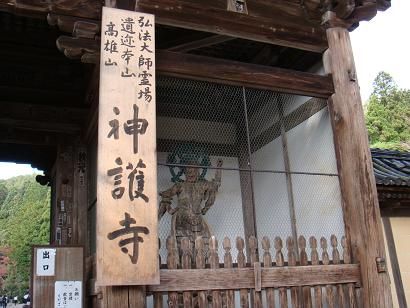 弘法大師霊場
遺迹本山
高雄山
神護寺
出口